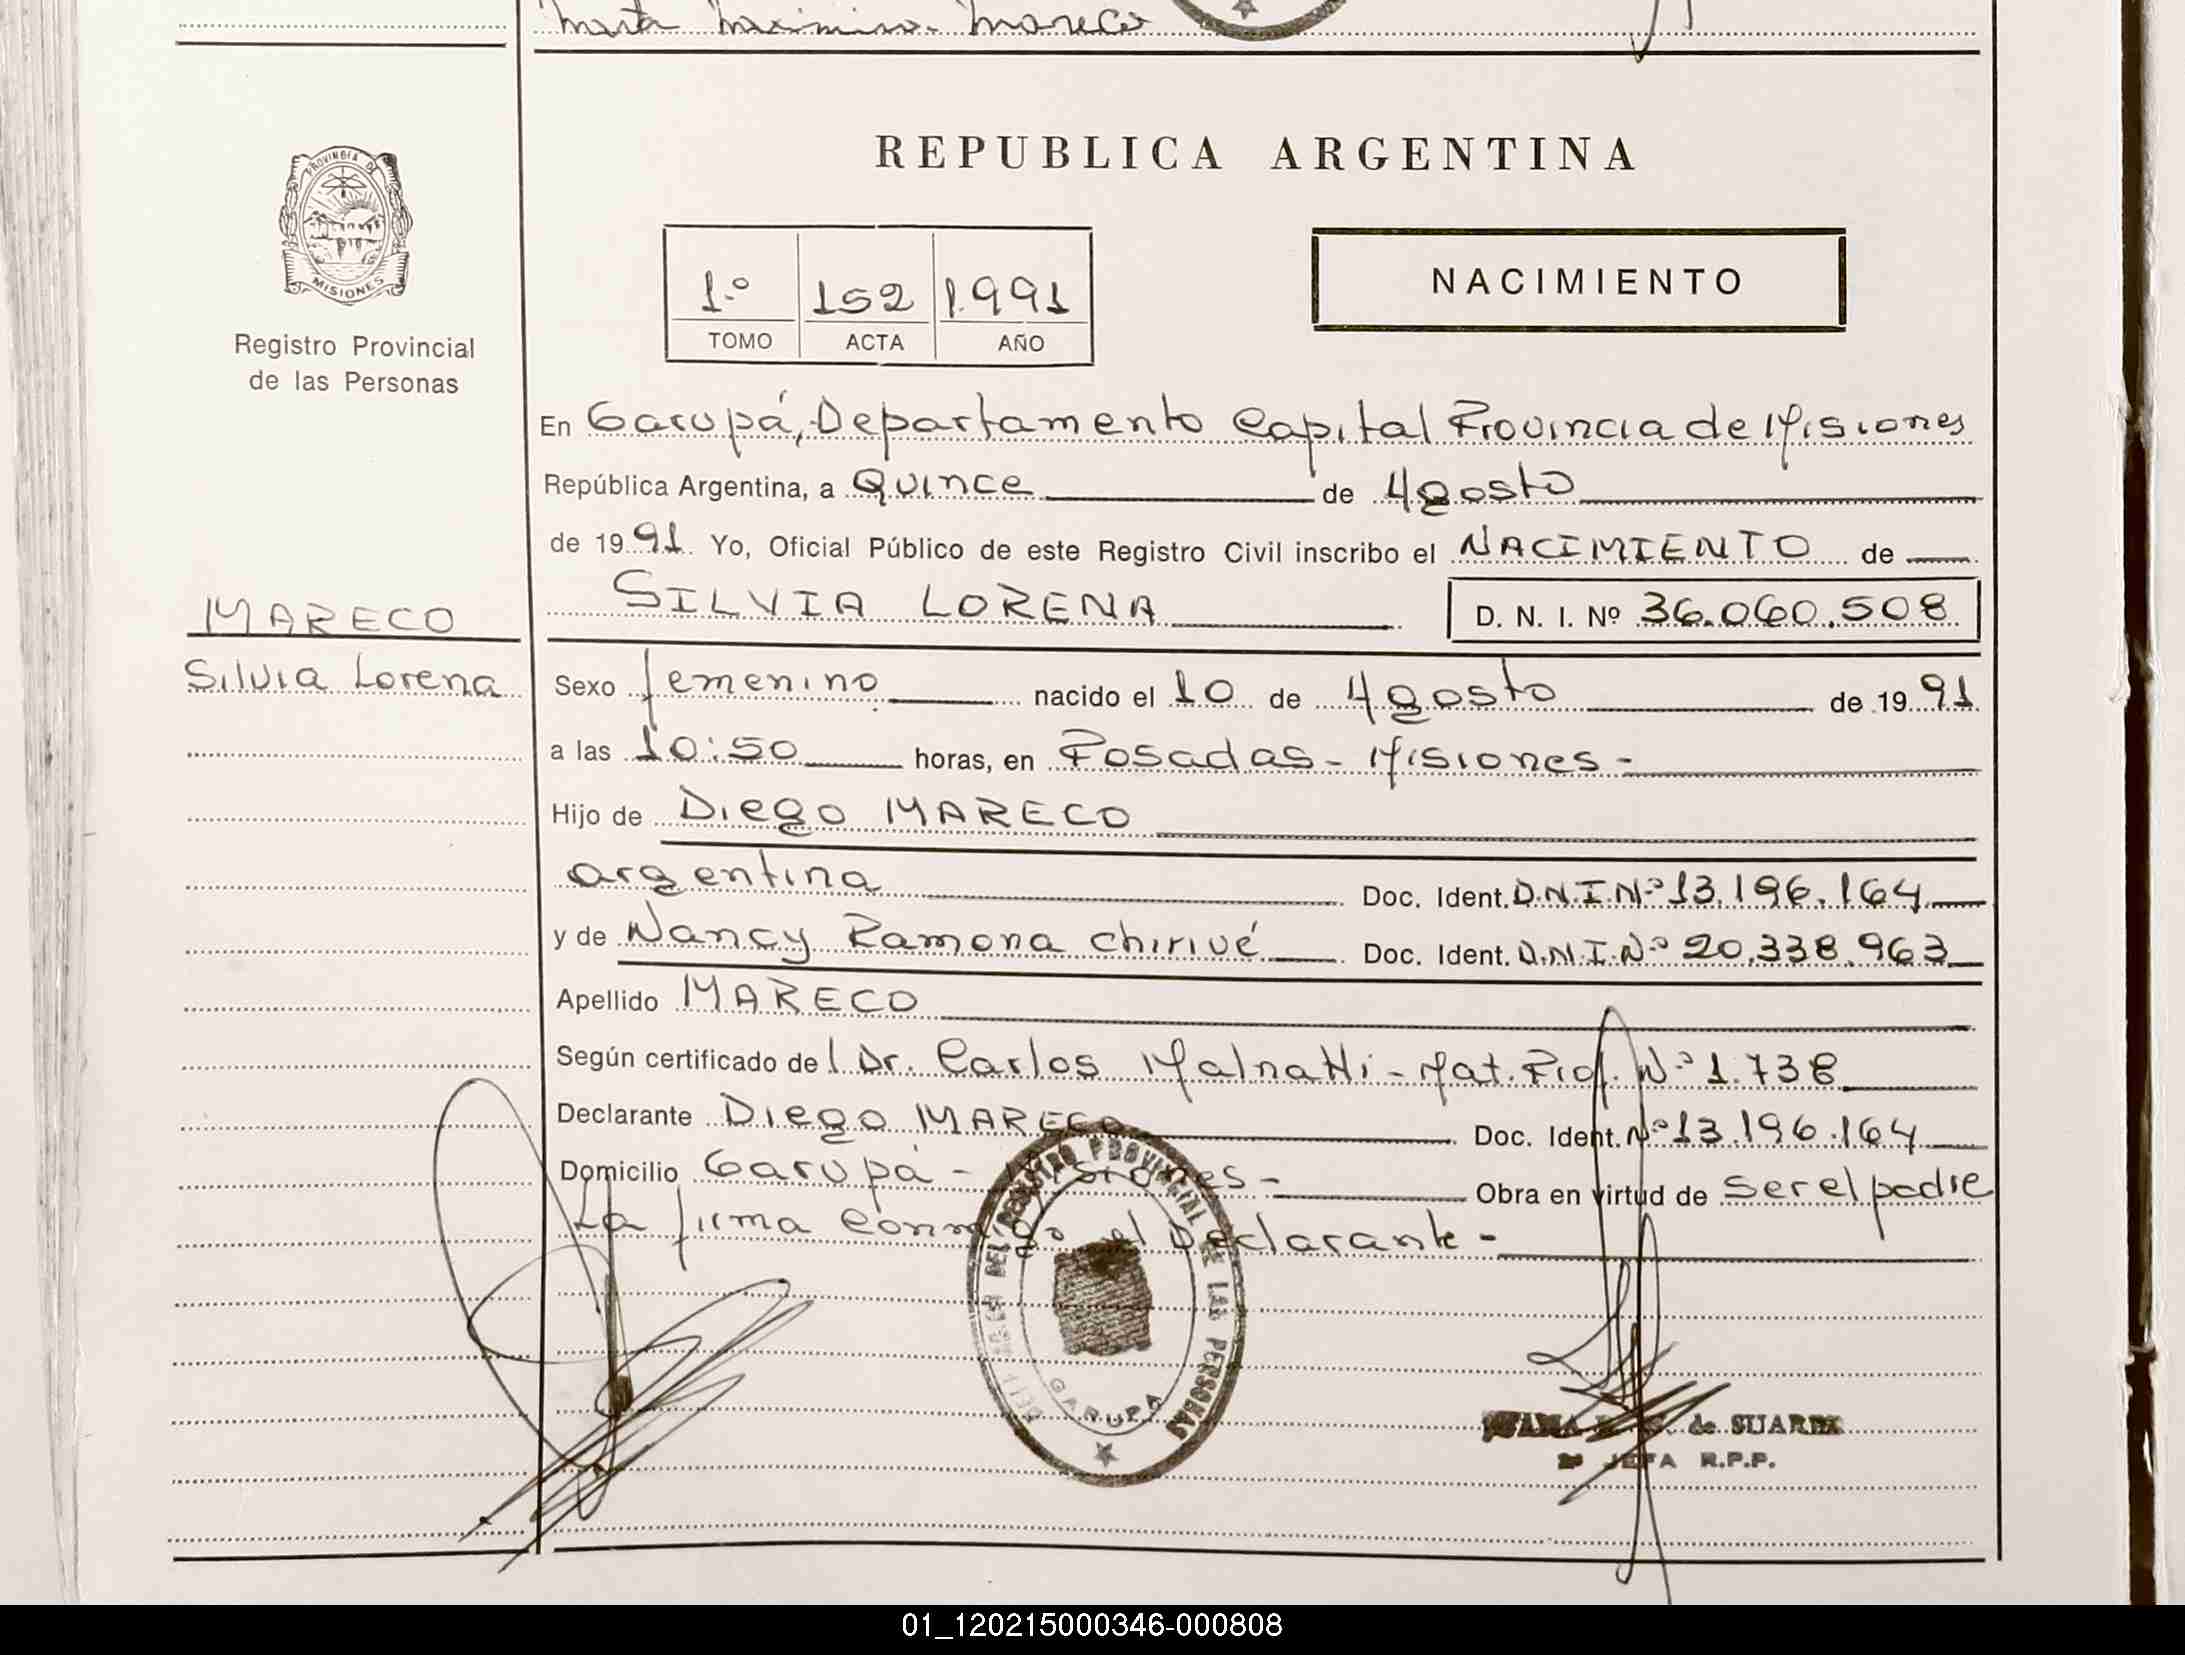 Marta Maximina Mareco
PROVINCIA DE
MISIONES
Registro Provincial
de las Personas
REPUBLICA ARGENTINA
1º 152 1.991
TOMO ACTA AÑO
NACIMIENTO
En Garupá, Departamento Capital Provincia de Misiones
República Argentina, a Quince de Agosto
de 1991 Yo, Oficial Público de este Registro Civil inscribo el NACIMIENTO de
SILVIA LORENA D. N. I. Nº 36.060.508
MARECO
Silvia Lorena
Sexo femenino nacido el 10 de Agosto de 1991
a las 10:50 horas, en Posadas - Misiones -
Hijo de Diego MARECO
argentina Doc. Ident. D.N.I.Nº 13.196.164
y de Nancy Ramona Chirivé Doc. Ident. D.N.I.Nº 20.338.963
Apellido MARECO
Según certificado del Dr. Carlos Malnatti - Mat. Prof. Nº 1.738
Declarante Diego MARECO Doc. Ident. Nº 13.196.164
Domicilio Garupá - Misiones - Obra en virtud de ser el padre
La firma conmigo el Declarante -
DEL REGISTRO PROVINCIAL DE LAS PERSONAS
GARUPA
de SUAREZ
2ª JEFA R.P.P.
01_120215000346-000808